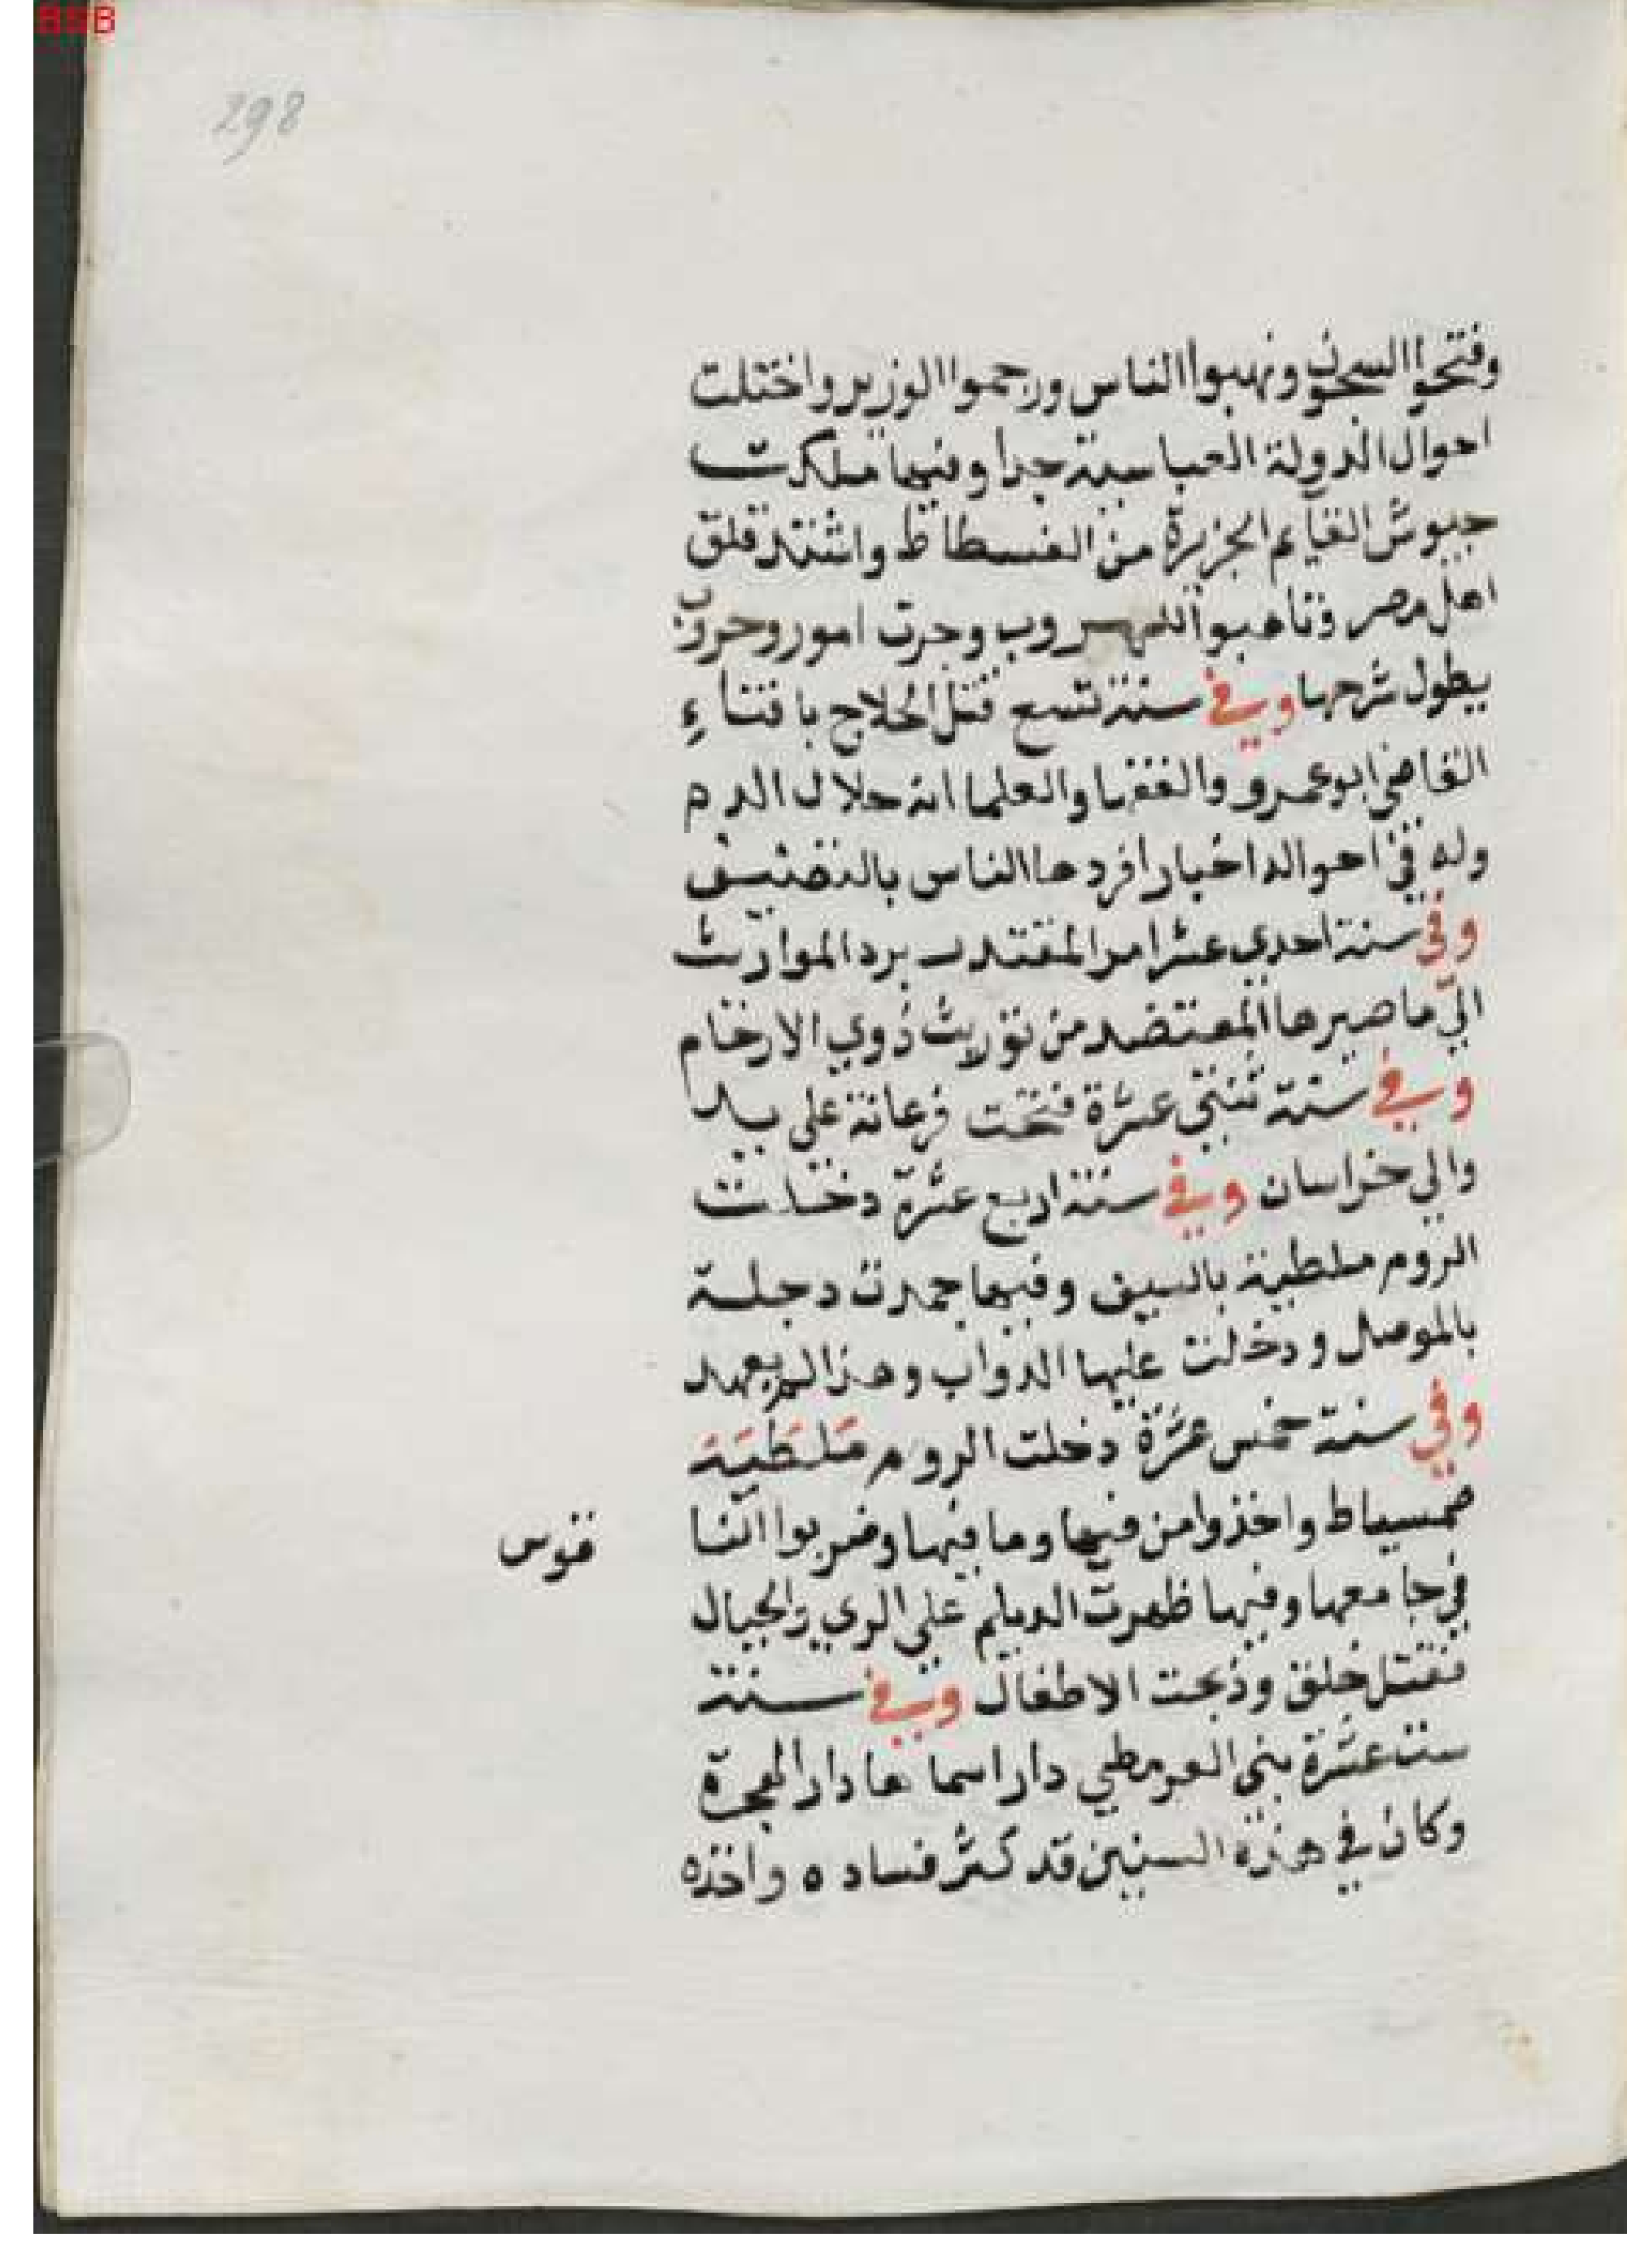 298
وفتحوا السجون ونهبوا الناس ورجموا الوزير واختلت
احوال الدولة العباسية جدا وفيها ملكت
جيوش القايم الجزيرة من الفسطاط واشتد قلق
اهل مصر وتاهبوا للهروب وجرت امور وحروب
يطول شرحها وفي سنة تسع قتل الحلاج بافتاء
القاضي ابو عمرو والفقها والعلما انه حلال الدم
وله في احواله اخبار افردها الناس بالتصنيف
وفي سنة احدي عشر امر المقتدر برد المواريث
الي ما صيرها المعتضد من توريث ذوي الارحام
وفي سنة ثنتي عشرة فتحت فرغانة علي يد
والي خراسان وفي سنة اربع عشرة دخلت
الروم ملطية بالسيف وفيها جمدت دجلة
بالموصل ودخلت عليها الدواب وهذا لم يعهد
وفي سنة خمس عشرة دخلت الروم مَلَطْيَة
صمسياط واخذوا من فيها وما فيها وضربوا النا
قوس
في جامعها وفيها ظهرت الديلم علي الري والجبال
فقتل خلق وذبحت الاطفال وفي سنة
ست عشرة بني القرمطي دار اسماها دار الهجرة
وكان في هذه السنين قد كثر فساده واخذه